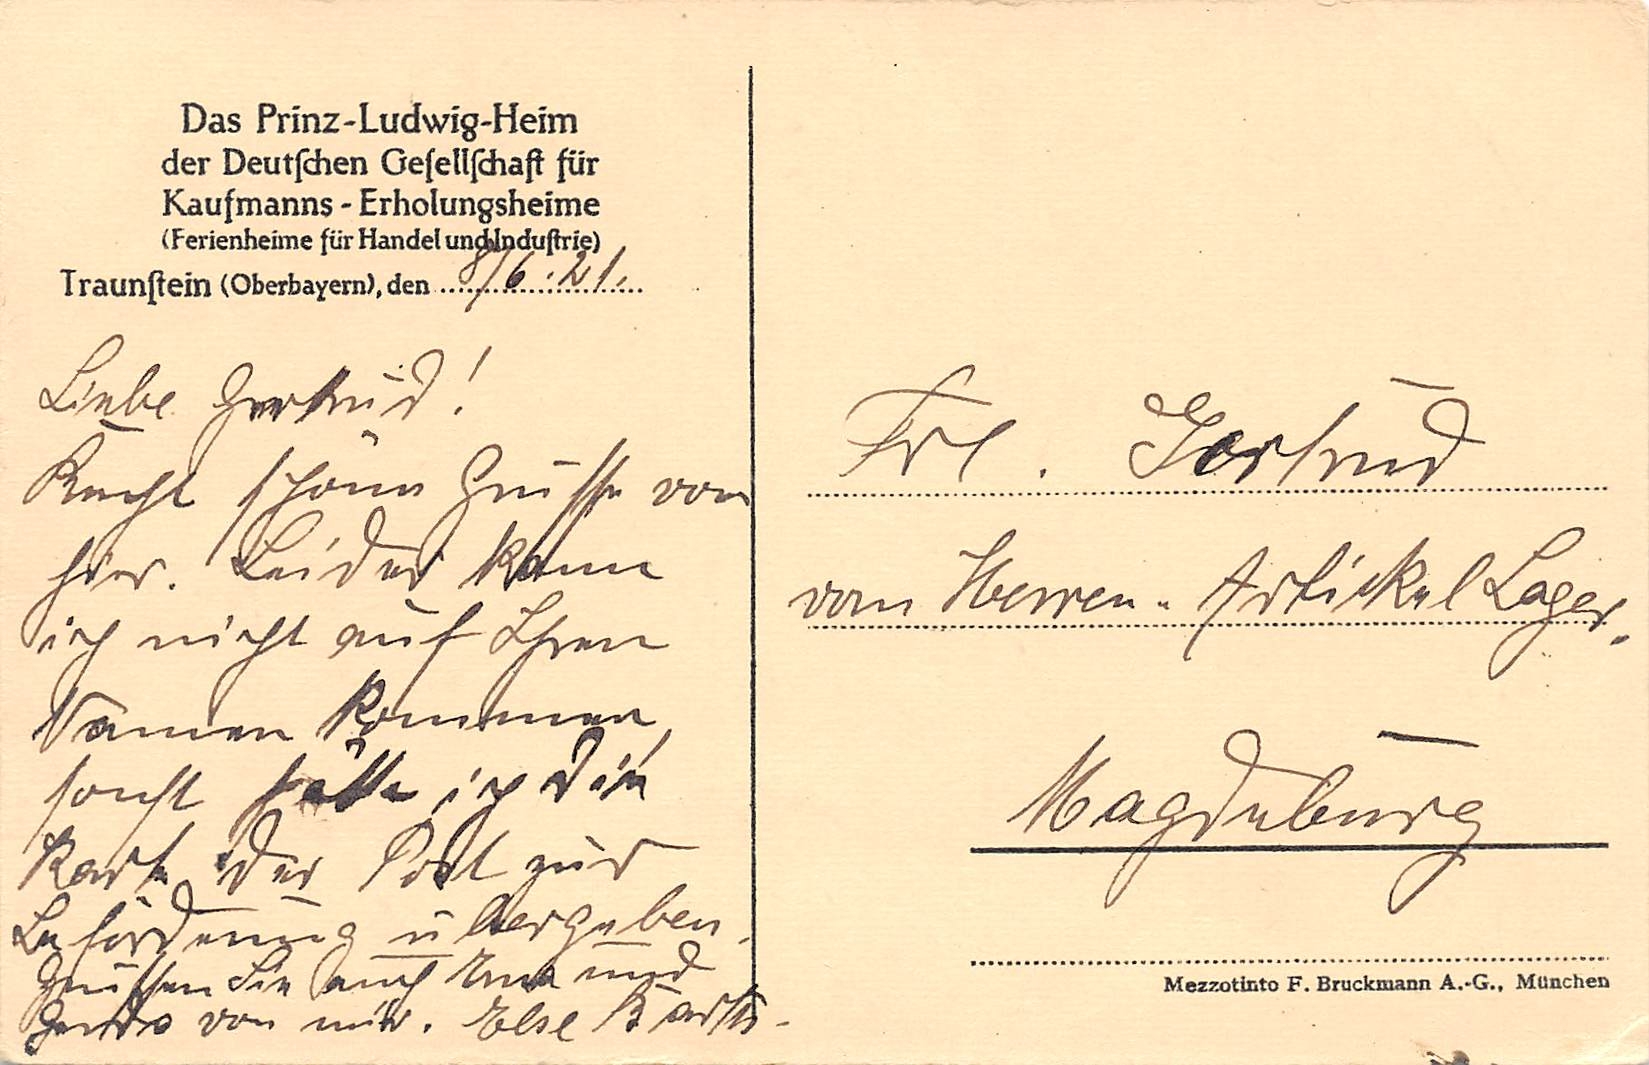 Das Prinz-Ludwig-Heim
der Deutſchen Geſellſchaft für
Kaufmanns-Erholungsheime
(Ferienheime für Handel und Induſtrie)
Traunſtein (Oberbayern), den 8/6.21.
Liebe Gertrud!
Recht schöne Grüsse von
hier. Leider kann
ich nicht auf Ihren
Namen kommen,
sonst hätte ich die
Karte der Post zur
Beförderung übergeben.
Grüssen Sie auch Erna und
von mir. Else
Frl. Gertrud
vom Herren-Artickel Lager.
Magdeburg
Mezzotinto F. Bruckmann A.-G., München